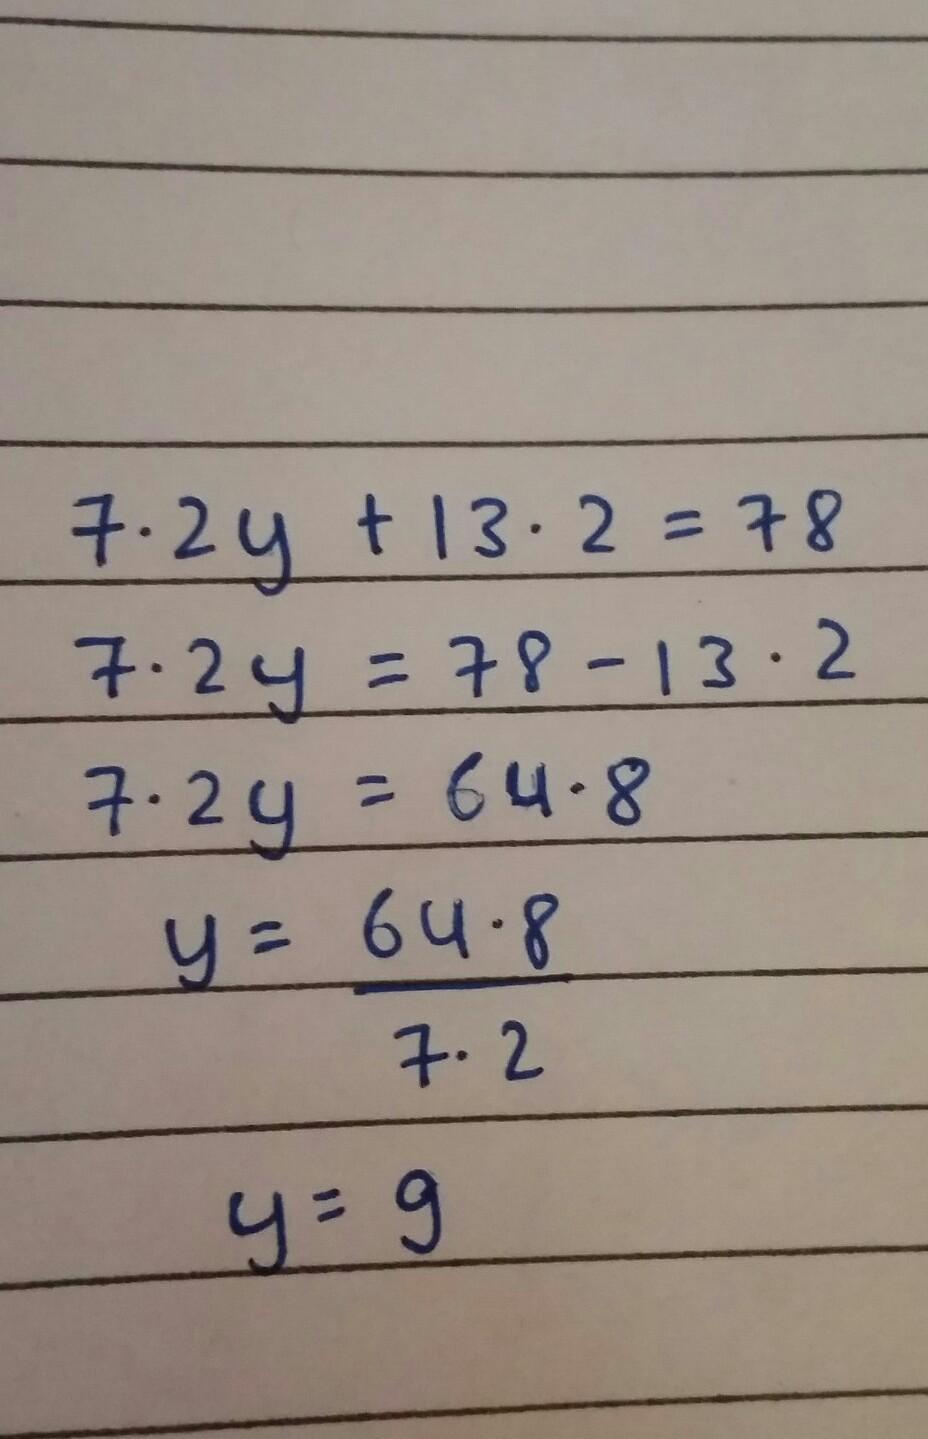 7·2y + 13·2 = 78
7·2y = 78 - 13·2
7·2y = 64·8
y = 64·8
7·2
y = 9